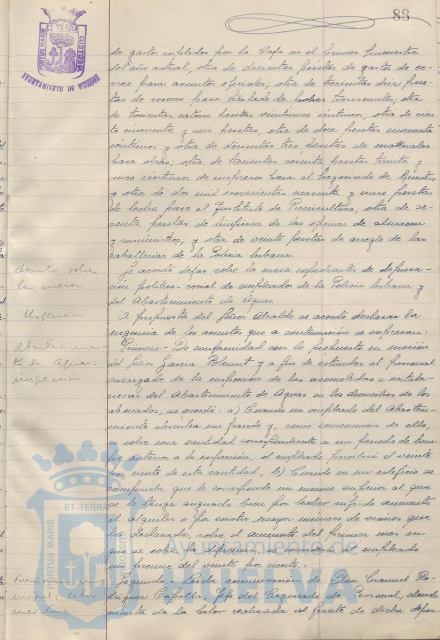 88
de gasto empleados por la Caja en el primer trimestre
del año actual, otra de doscientas pesetas de gastos de co-
rreo para asuntos oficiales, otra de trescientas diez pese-
tas de socorro para traslado de pobres transeuntes, otra
de trescientas catorce pesetas veintiun centimos, otra de cien-
to cincuenta y seis pesetas, otra de doce pesetas cincuenta
centimos y otra de doscientas tres pesetas de materiales
para obras, otra de trescientas sesenta pesetas treinta y
cinco centimos de impresos para el Negociado de Quintas
y otra de dos mil novecientas cuarenta y cinco pesetas
de leche para el Instituto de Puericultura, otra de se-
senta pesetas de limpieza de las oficinas de almacen
y suministros, y otra de veinte pesetas de arreglo de las
caballerias de la Policia Urbana.
Asuntos sobre
la mesa
Se acordó dejar sobre la mesa expedientes de depura-
ción politico-social de empleados de la Policia Urbana y
del Abastecimiento de Aguas.
Urgencia
A propuesta del Señor Alcalde se acordó declarar la
urgencia de los asuntos que a continuación se expresan:
Abastecimien-
to de Aguas:
inspección
Primero - De conformidad con lo propuesto en moción
del Señor Garcia y a fin de estimular al personal
encargado de la inspección de las acometidas e instala-
ciones del Abastecimiento de Aguas en los domicilios de los
abonados, se acordó: a) Cuando un empleado del Abasteci-
miento descubra un fraude y, como consecuencia de ello,
se cobre una cantidad correspondiente a un periodo de tiem-
po anterior a la inspección, el empleado percibirá el veinte
por ciento de esta cantidad. b) Cuando en un edificio se
compruebe que le corresponde un minimo superior al que
se le tenga asignado bien por haber sufrido aumento
el alquiler o por existir mayor número de vecinos que
los declarados, sobre el aumento del primer mes en
que se cobre la diferencia se concederá al empleado
un premio del veinte por ciento.
Segundo - Leida comunicación de Don Manuel Ro-
driguez, Jefe del Negociado de Personal, dando
cuenta de la labor realizada al frente de dicha depen-
AYUNTAMIENTO DE HUELVA
Ayuntamiento de
HUELVA